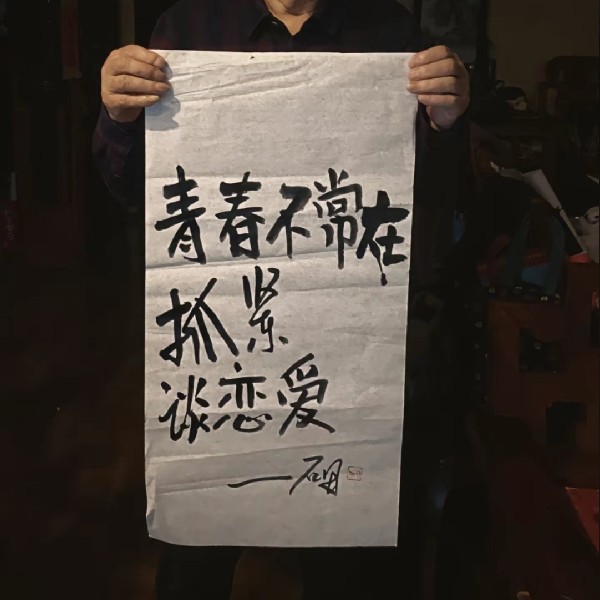 青春不常在
抓紧
谈恋爱
一砚